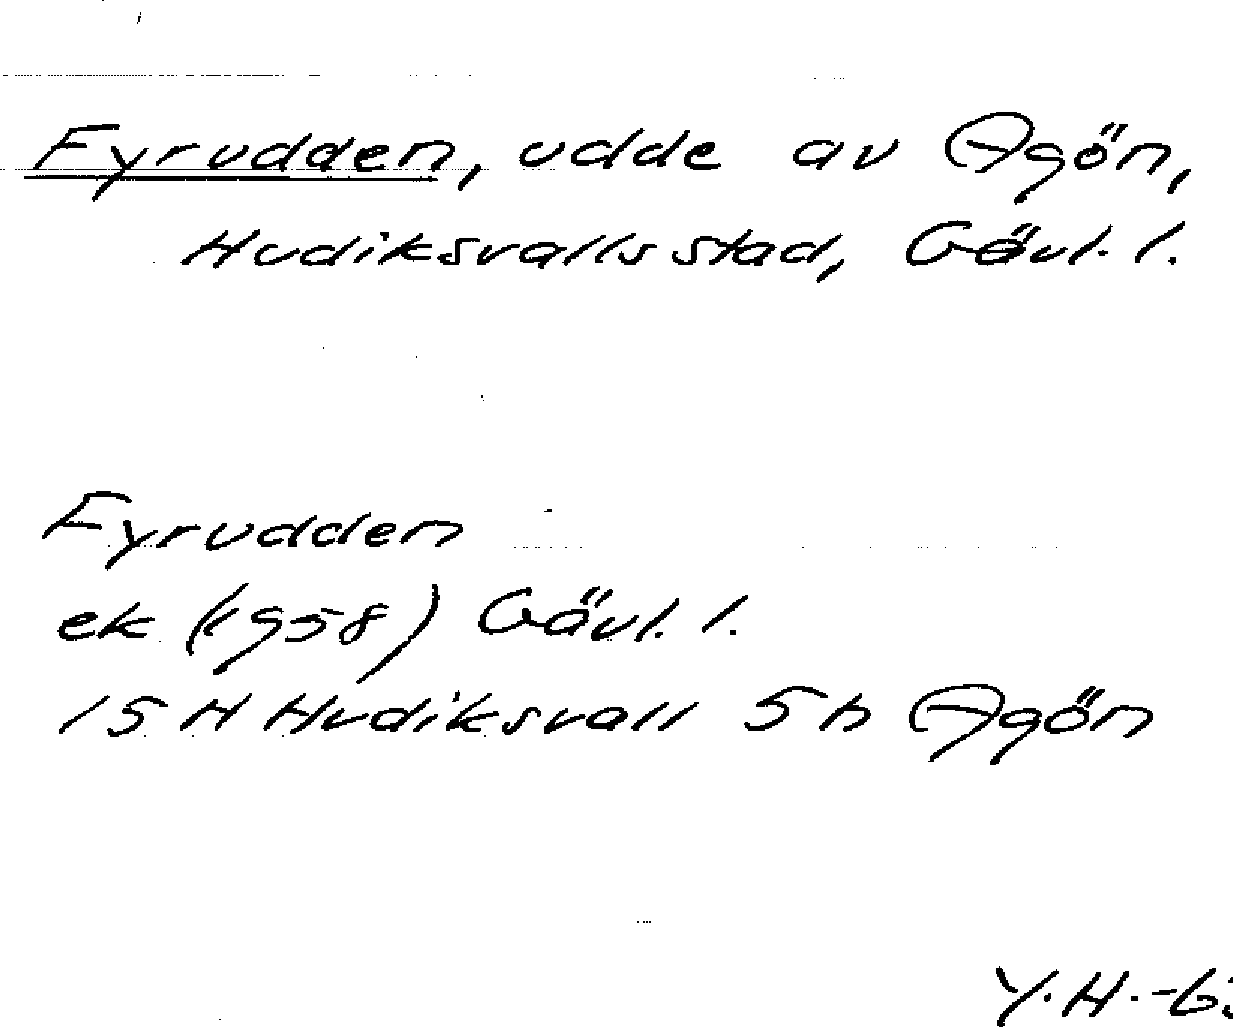 Fyrudden, udde av Agön,
Hudiksvalls stad, Gävl. l.
Fyrudden
ek (1958) Gävl. l.
15 H Hudiksvall 5 h Agön
Y. H.